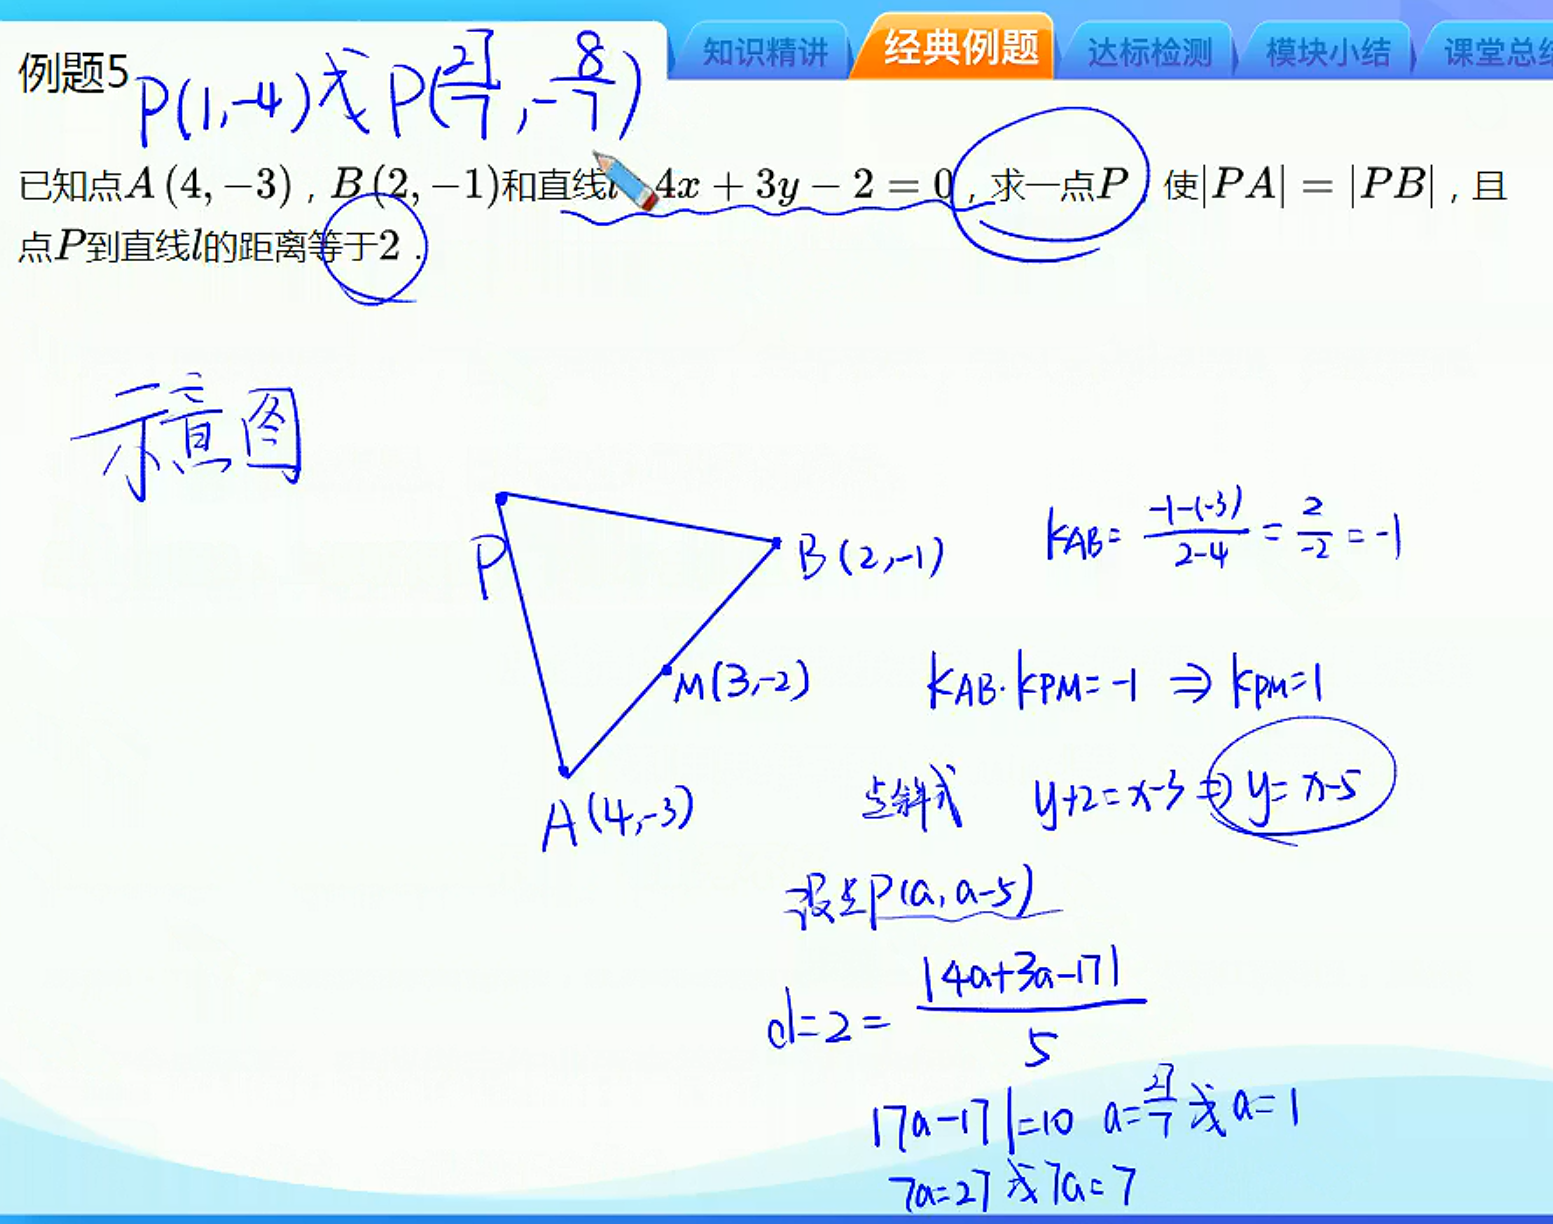 知识精讲 经典例题 达标检测 模块小结 课堂总结
例题5 P(1,-4)或P(27/7,-8/7)
已知点A(4,−3)，B(2,−1)和直线l：4x+3y−2=0，求一点P，使|PA|=|PB|，且
点P到直线l的距离等于2．
示意图
P
B(2,-1)
M(3,-2)
A(4,-3)
kAB=-1-(-3)/2-4=2/-2=-1
kAB·kPM=-1⇒kPM=1
点斜式 y+2=x-3⇒y=x-5
设点P(a,a-5)
d=2=|4a+3a-17|/5
|7a-17|=10 a=27/7或a=1
7a=27或7a=7